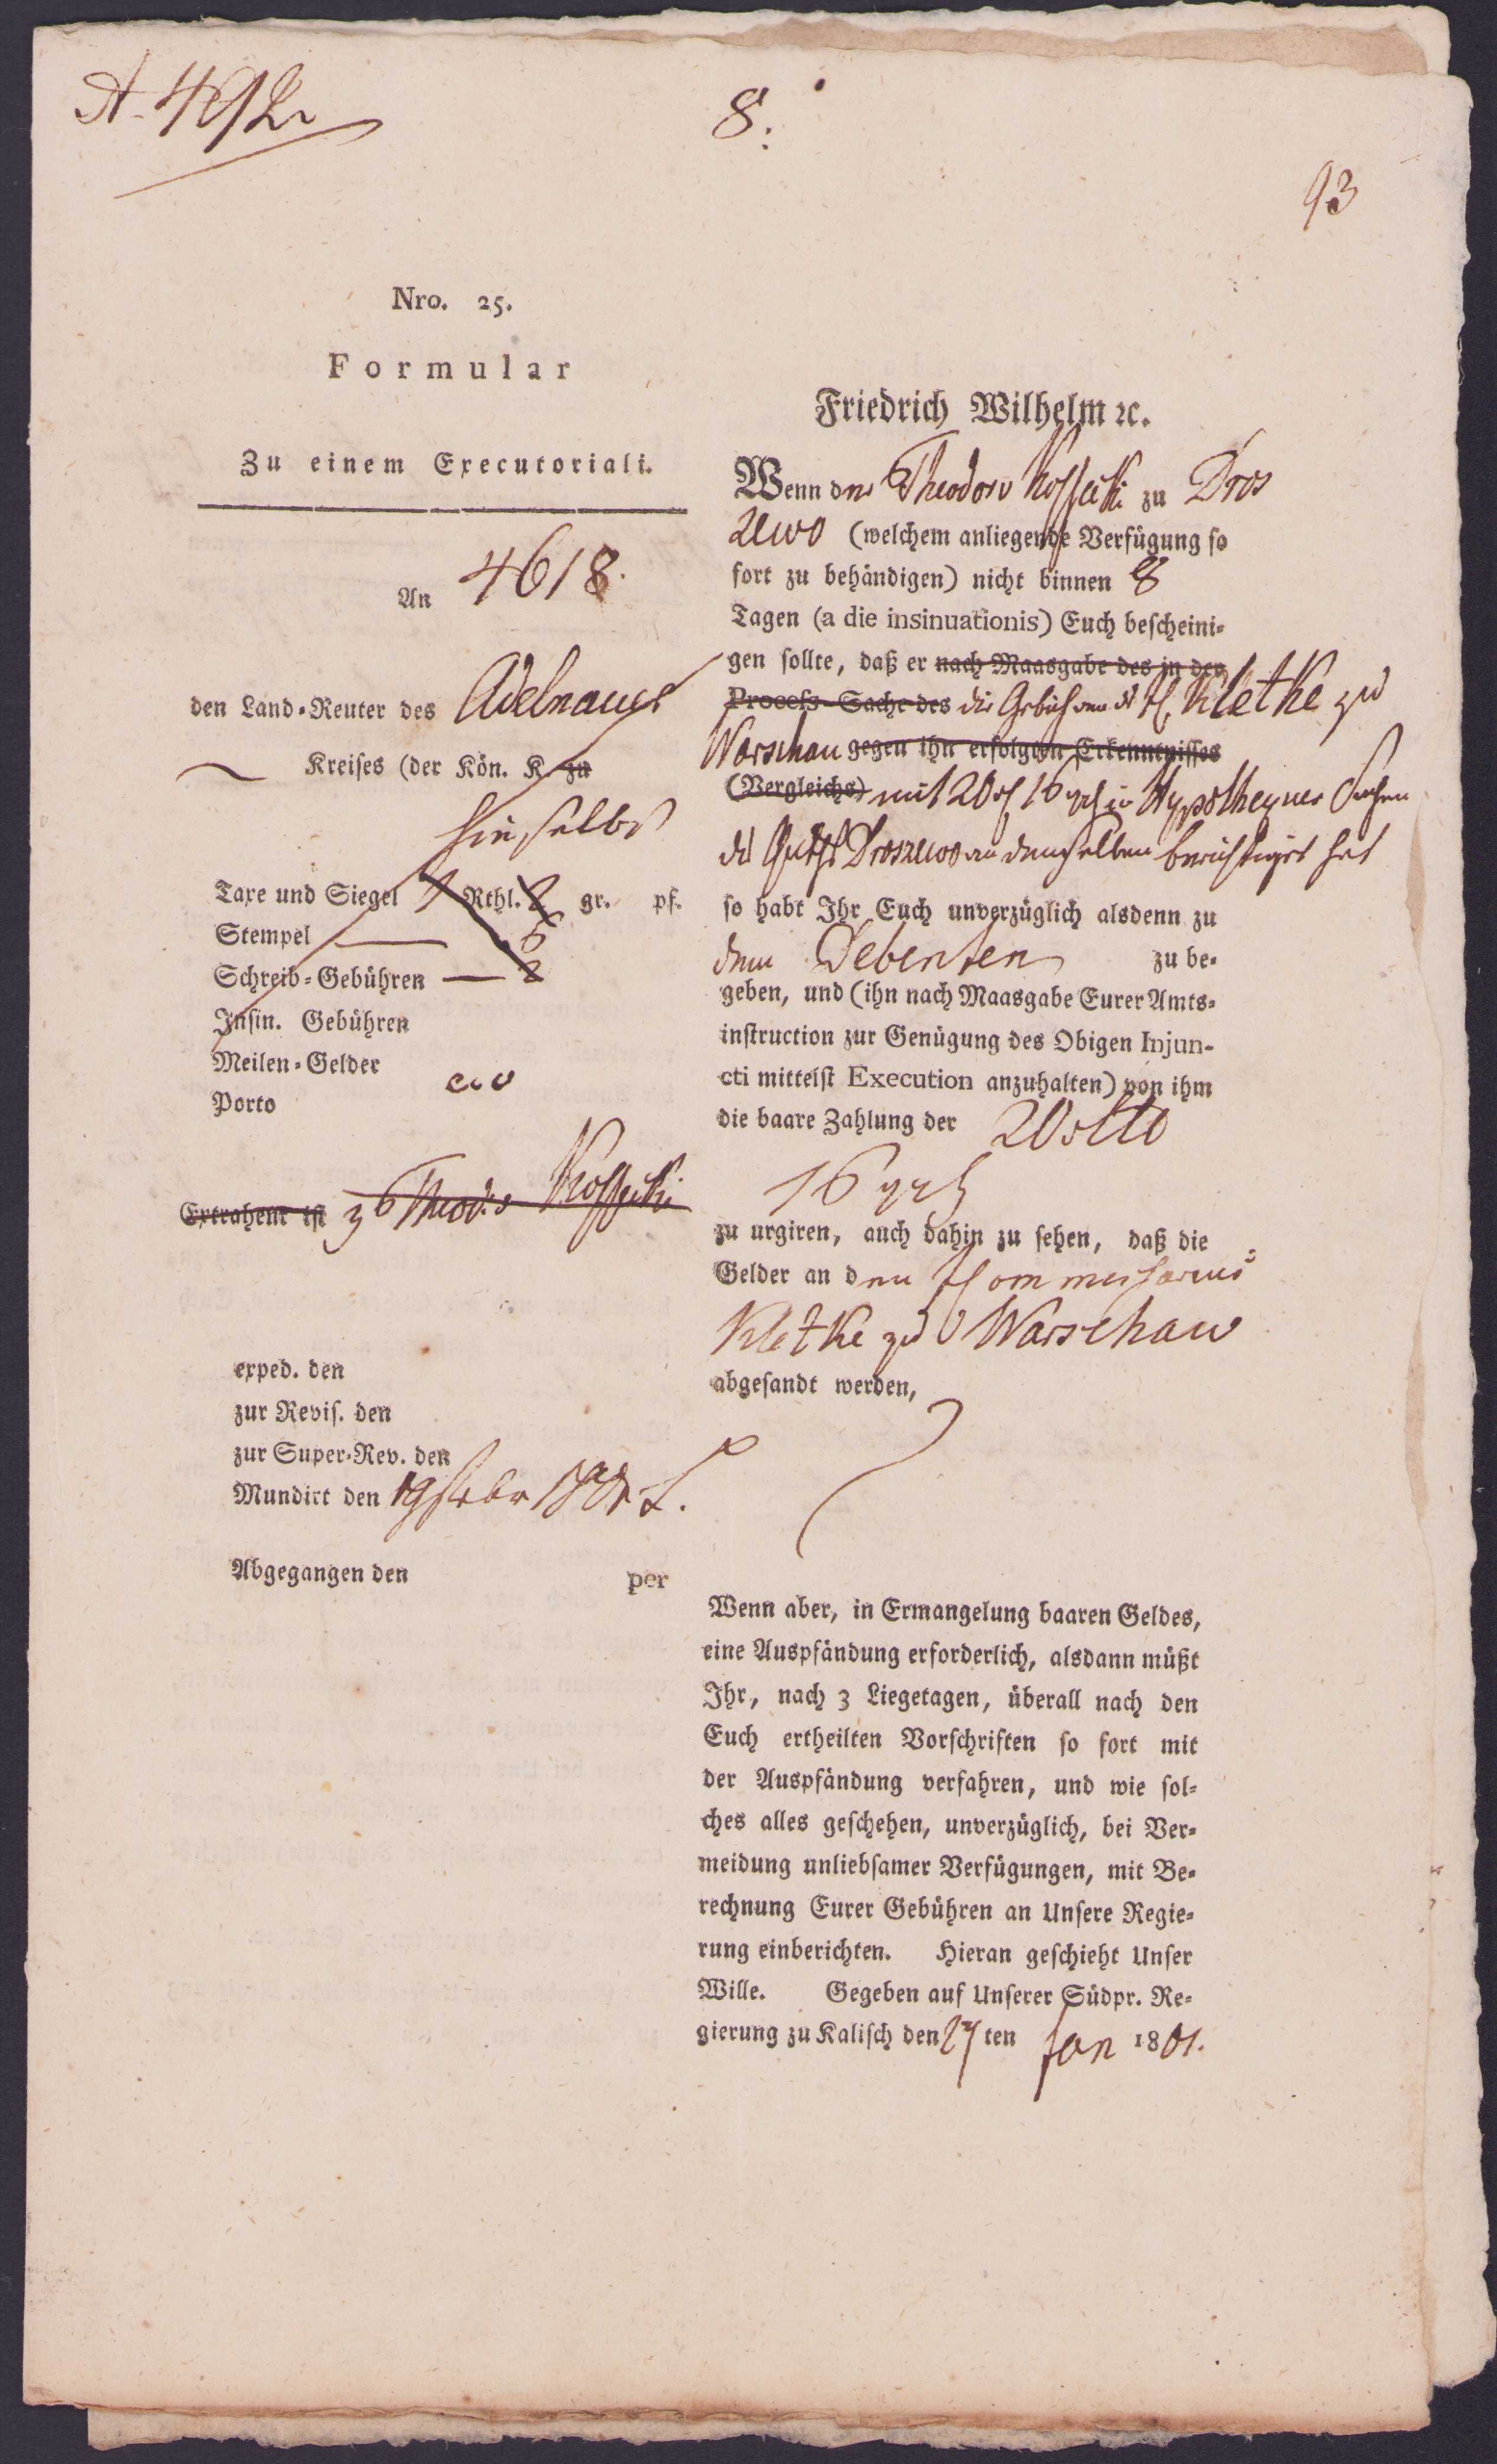 A. 492
8.
93
Nro. 25.
Formular
Zu einem Executoriali.
An 4618.
den Land-Reuter des Adelnauer
Kreises (der Kön. K. zu
hieselbst
Taxe und Siegel Rthl. gr. pf.
Stempel
Schreib-Gebühren
Insin. Gebühren
Meilen-Gelder
Porto
Extrahent ist Theod.
exped. den
zur Revis. den
zur Super-Rev. den
Mundirt den 19
Abgegangen den per
Friedrich Wilhelm ꝛc.
Wenn der Theodor zu Dros
zewo (welchem anliegende Verfügung so
fort zu behändigen) nicht binnen 8
Tagen (a die insinuationis) Euch bescheini-
gen sollte, daß er nach Maasgabe des in der
Process-Sache des die Gebühren Kletke zu
Warschau gegen ihn erfolgten Erkenntnisses
(Vergleichs) mit 20 16 in Sachen
Droszewo an denselben berichtiget hat
so habt Ihr Euch unverzüglich alsdenn zu
dem Debenten zu be-
geben, und (ihn nach Maasgabe Eurer Amts-
instruction zur Genügung des Obigen Injun-
cti mittelst Execution anzuhalten) von ihm
die baare Zahlung der 20
16
zu urgiren, auch dahin zu sehen, daß die
Gelder an den
Kletke zu Warschau
abgesandt werden,
Wenn aber, in Ermangelung baaren Geldes,
eine Auspfändung erforderlich, alsdann müßt
Ihr, nach 3 Liegetagen, überall nach den
Euch ertheilten Vorschriften so fort mit
der Auspfändung verfahren, und wie sol-
ches alles geschehen, unverzüglich, bei Ver-
meidung unliebsamer Verfügungen, mit Be-
rechnung Eurer Gebühren an Unsere Regie-
rung einberichten. Hieran geschieht Unser
Wille. Gegeben auf Unserer Südpr. Re-
gierung zu Kalisch den 27 ten Jan 1801.